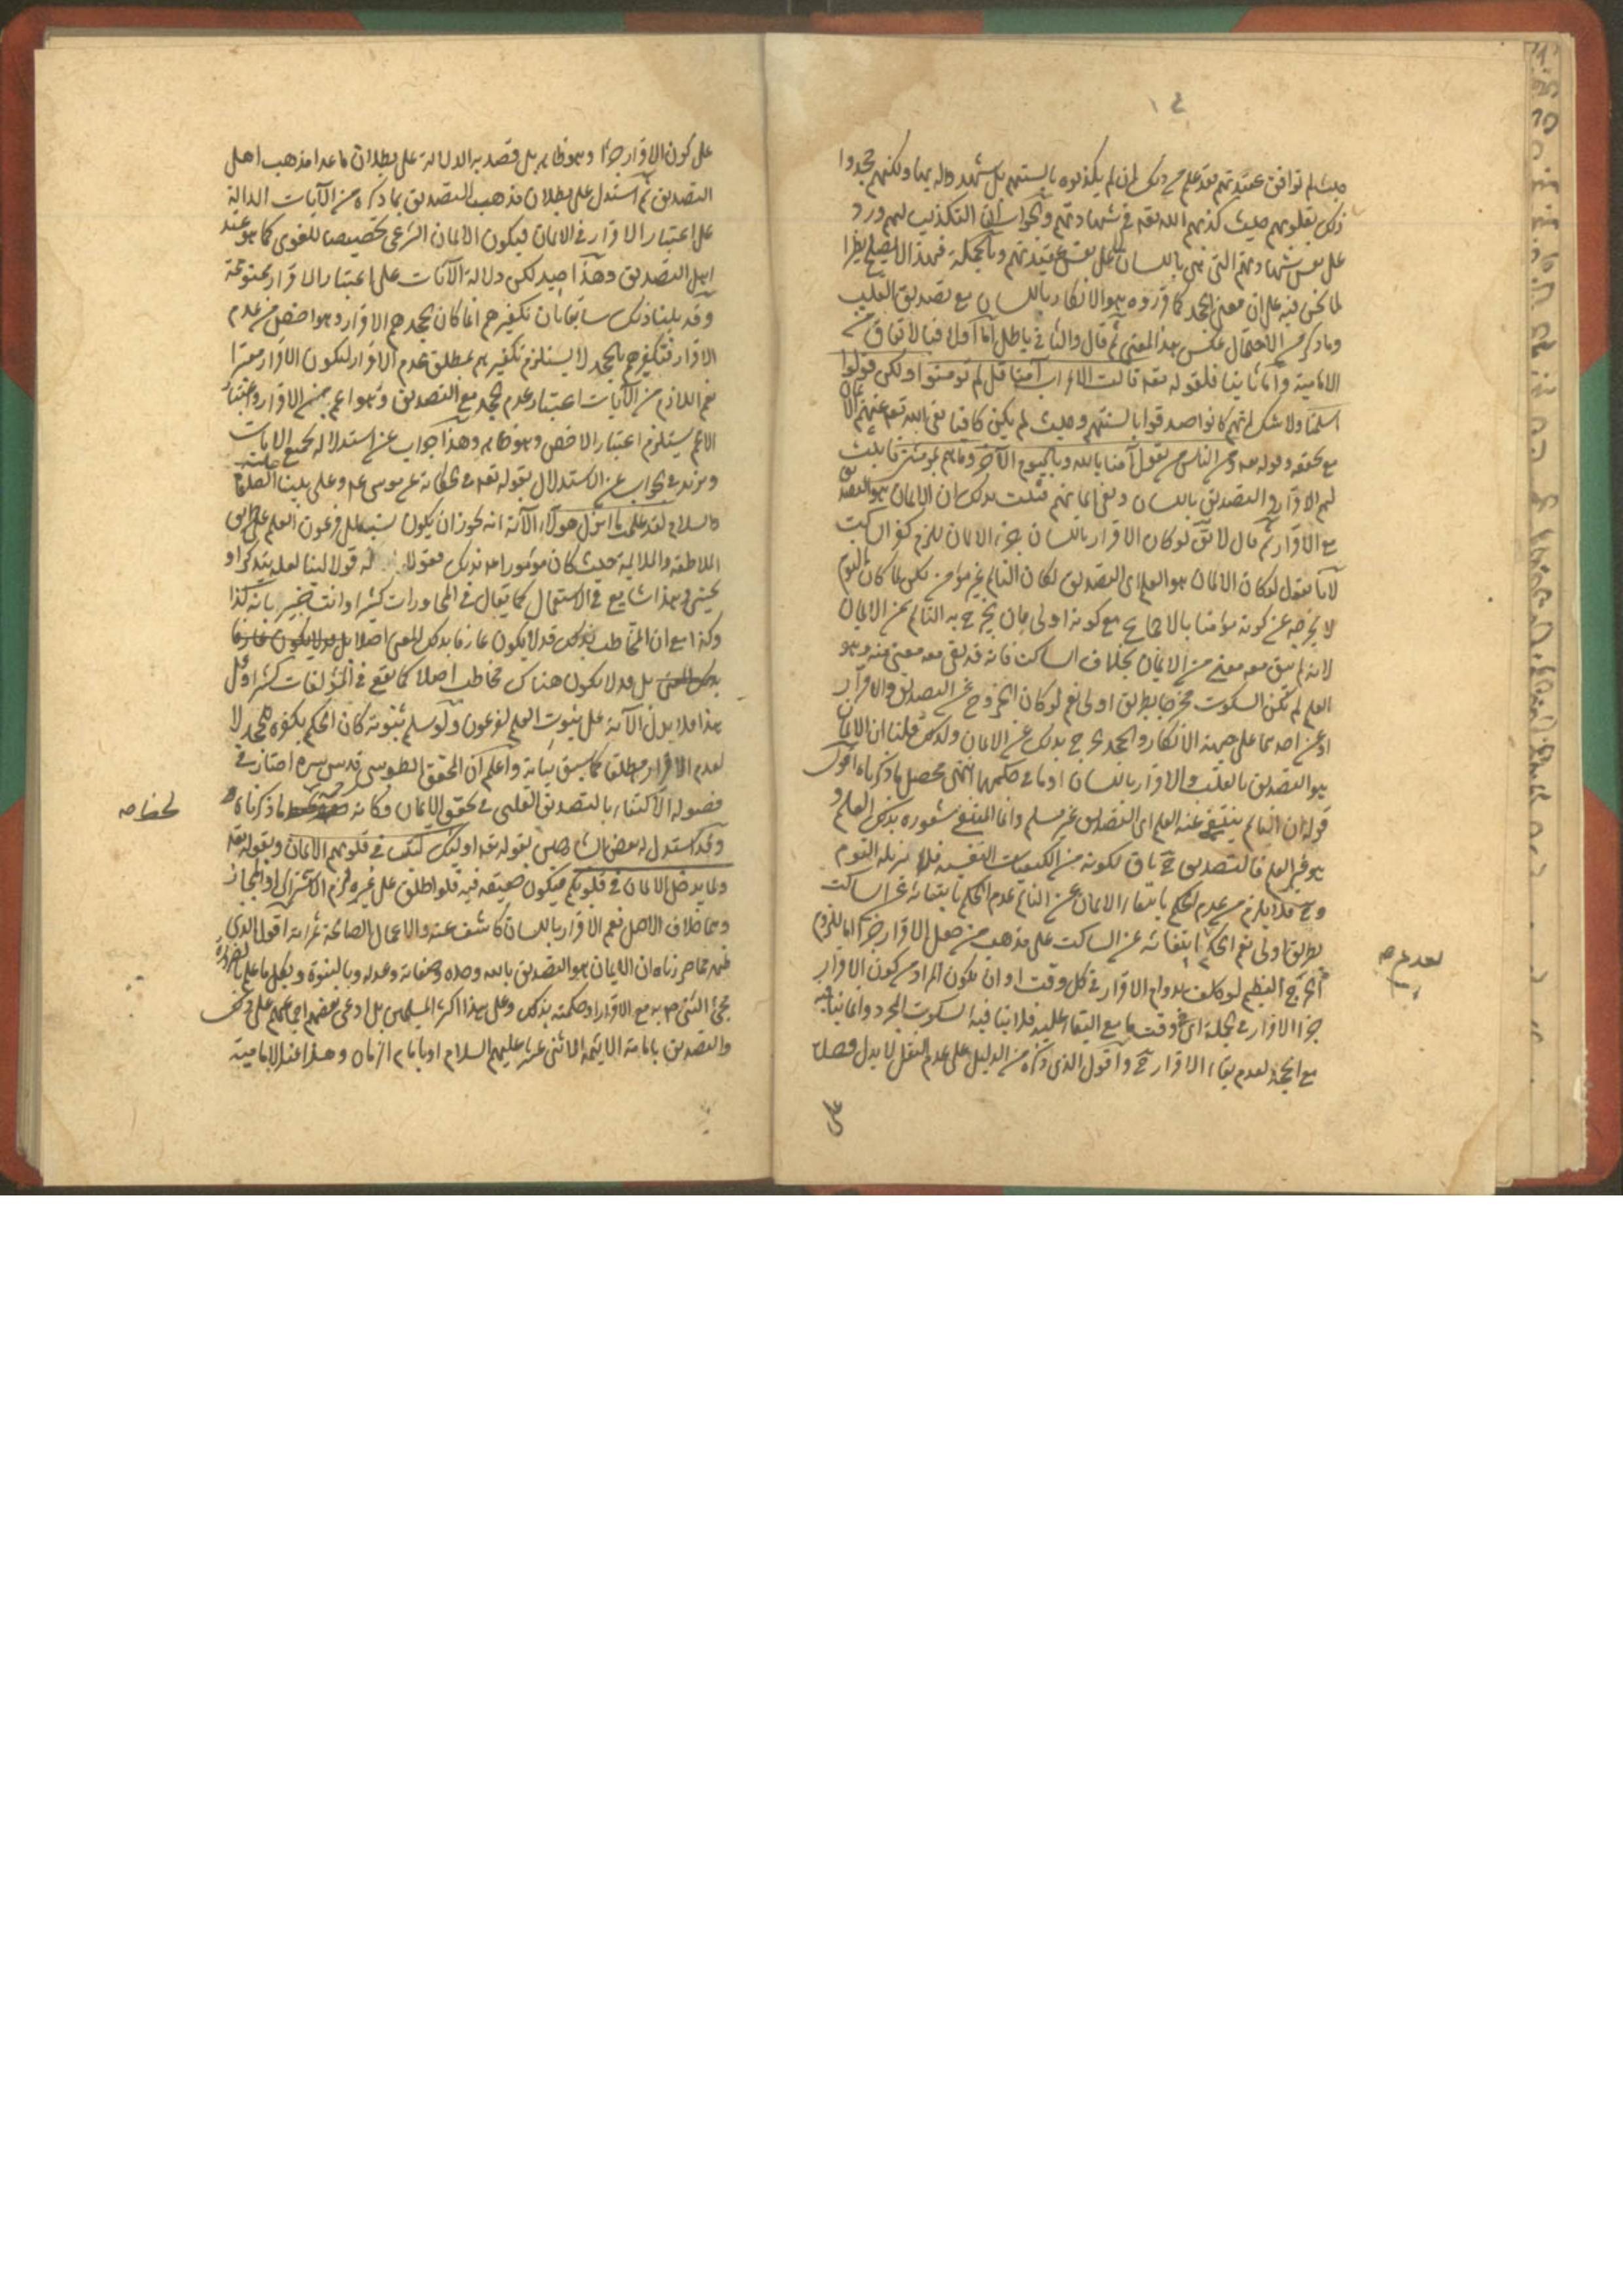 ١٤
حيث لم توافق عقيدتهم فقد علم من ذلك انهم لم يكذبوه بالسنتهم بل شهدوا له بها ولكنهم جحدوا
ذلك بقلوبهم حيث كذبهم الله تعه في شهادتهم والجواب ان التكذيب لهم ورد
على نفس شهادتهم التي هي باللسان لا على نفس عقيدتهم وبالجملة فهذا لا يصلح نظرا
لما نحن فيه على ان معنى الجحد كما قرروه هو الانكار باللسان مع تصديق القلب
وما ذكر من الاحتمال عكس هذا المعنى ثم قال والثاني باطل اما اولا فبالاتفاق من
الامامية واما ثانيا فلقوله تعه قالت الاعراب آمنا قل لم تؤمنوا ولكن قولوا
اسلمنا ولا شك انهم كانوا صدقوا بالسنتهم وحيث لم يكن كافيا نفى الله تعه عنهم الايمان
مع تحققه وقوله تعه ومن الناس من يقول آمنا بالله وباليوم الآخر وما هم بمؤمنين فاثبت
لهم الاقرار والتصديق باللسان ونفى ايمانهم فثبت بذلك ان الايمان هو التصديق
مع الاقرار ثم قال لا يق لو كان الاقرار باللسان جزء الايمان للزم كفر الساكت
لانا نقول لو كان الايمان هو العلم اى التصديق لكان النائم غير مؤمن لكن لما كان النوم
لا يخرجه عن كونه مؤمنا بالاجماع مع كونه اولى بان يخرج به النائم عن الايمان
لانه لم يبق معه معنى من الايمان بخلاف الساكت فانه قد بقى معه معنى منه وهو
العلم لم يكن السكوت مخرجا بطريق اولى نعم لو كان الخروج عن التصديق والاقرار
او عن احدهما على جهة الانكار والجحد لخرج بذلك عن الايمان ولذلك قلنا ان الايمان
هو التصديق بالقلب والاقرار باللسان او ما في حكمهما انتهى محصل ما ذكرناه اقول
قوله ان النائم ينتفى عنه العلم اى التصديق غير مسلم وانما المنتفى شعوره بذلك العلم و
هو غير العلم فالتصديق ح باق لكونه من الكيفيات النفسية فلا يزيله النوم
وح فلا يلزم من عدم الحكم بانتفاء الايمان عن النائم عدم الحكم بانتفائه عن الساكت
بطريق اولى نعم الحكم بانتفائه عن الساكت على مذهب من جعل الاقرار جزءا اما للزوم
الحرج العظيم لو كلف بدوام الاقرار في كل وقت او ان يكون المراد من كون الاقرار
جزءا الاقرار في الجملة اى في وقت ما مع البقاء عليه فلا ينافيه السكوت المجرد وانما ينافيه
مع الجحد لعدم بقاء الاقرار ح واقول الذي ذكره من الدليل على عدم النقل لا يدل وحده
لعدم صح
على
على كون الاقرار جزءا وهو ظاهر بل قصد به الدلالة على بطلان ما عدا مذهب اهل
التصديق ثم استدل على بطلان مذهب التصديق بما ذكره من الآيات الدالة
على اعتبار الاقرار في الايمان فيكون الايمان الشرعي تخصيصا للغوى كما هو عند
اهل التصديق وهذا جيد لكن دلالة الآيات على اعتبار الاقرار ممنوعة
وقد بينا ذلك سابقا بان تكفيرهم انما كان بجحدهم الاقرار وهو اخص من عدم
الاقرار فتكفيرهم بالجحد لا يستلزم تكفيرهم بمطلق عدم الاقرار ليكون الاقرار معتبرا
نعم اللازم من الآيات اعتبار عدم الجحد مع التصديق وهو اعم من الاقرار واعتبار
الاعم لا يستلزم اعتبار الاخص وهو ظاهر وهذا جواب عن استدلاله بجميع الايات
ونزيد في الجواب عن الاستدلال بقوله تعه في الحكاية عن موسى ع وعلى نبينا الصلوة
والسلام لقد علمت ما انزل هؤلاء الآية انه يجوز ان يكون نسب الى فرعون العلم على طريق
الملاطفة والملاءمة حيث كان مأمورا بذلك بقوله فقولا له قولا لينا لعله يتذكر او
يخشى وهذا شايع في الاستعمال كما يقال في المحاورات كثيرا وانت خبير بانه كذا
وكذا مع ان المخاطب بذلك قد لا يكون عارفا بذلك المعنى اصلا بل قد لا يكون عارفا
بذلك المعنى بل قد لا يكون هناك مخاطب اصلا كما يقع في المؤلفات كثيرا وعلى
هذا فلا يدل الآية على ثبوت العلم لفرعون ولو سلم ثبوته كان الحكم بكفره للجحد لا
لعدم الاقرار مطلقا كما سبق بيانه واعلم ان المحقق الطوسي قدس سره اختار في
فصوله الاكتفاء بالتصديق القلبي في تحقق الايمان فكانه لحظ ما ذكرناه
لحظ صح
وقد استدل له بعض الشارحين بقوله تعه اولئك كتب في قلوبهم الايمان وبقوله تعه
ولما يدخل الايمان في قلوبكم فيكون حقيقة فيه فلو اطلق على غيره لزم الاشتراك او المجاز
وهما خلاف الاصل نعم الاقرار باللسان كاشف عنه والاعمال الصالحة ثمراته اقول الذي
ظهر مما حررناه ان الايمان هو التصديق بالله وحده وصفاته وعدله وبالنبوة وبكل ما علم بالضرورة
مجئ النبي ص به مع الاقرار او حكمه بذلك وعلى هذا اكثر المسلمين بل ادعى بعضهم اجماعهم على ذلك
والتصديق بامامة الائمة الاثني عشر عليهم السلام او بامام الزمان وهذا عند الامامية